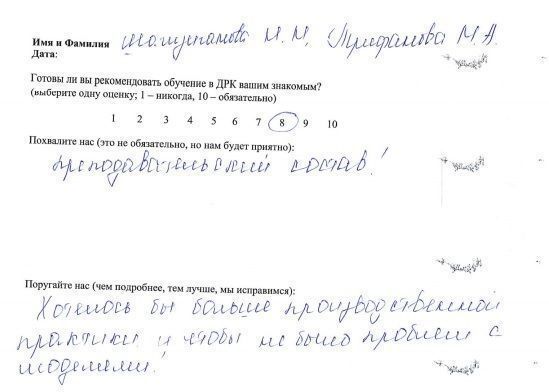 Имя и Фамилия Шолупанова М.М, Трифанова М.А.
Дата:
Готовы ли вы рекомендовать обучение в ДРК вашим знакомым?
(выберите одну оценку; 1 – никогда, 10 – обязательно)
1 2 3 4 5 6 7 8 9 10
Похвалите нас (это не обязательно, но нам будет приятно):
преподавательский состав!
Поругайте нас (чем подробнее, тем лучше, мы исправимся):
Хотелось бы больше производственной
практики и чтобы не было проблем с
моделями!